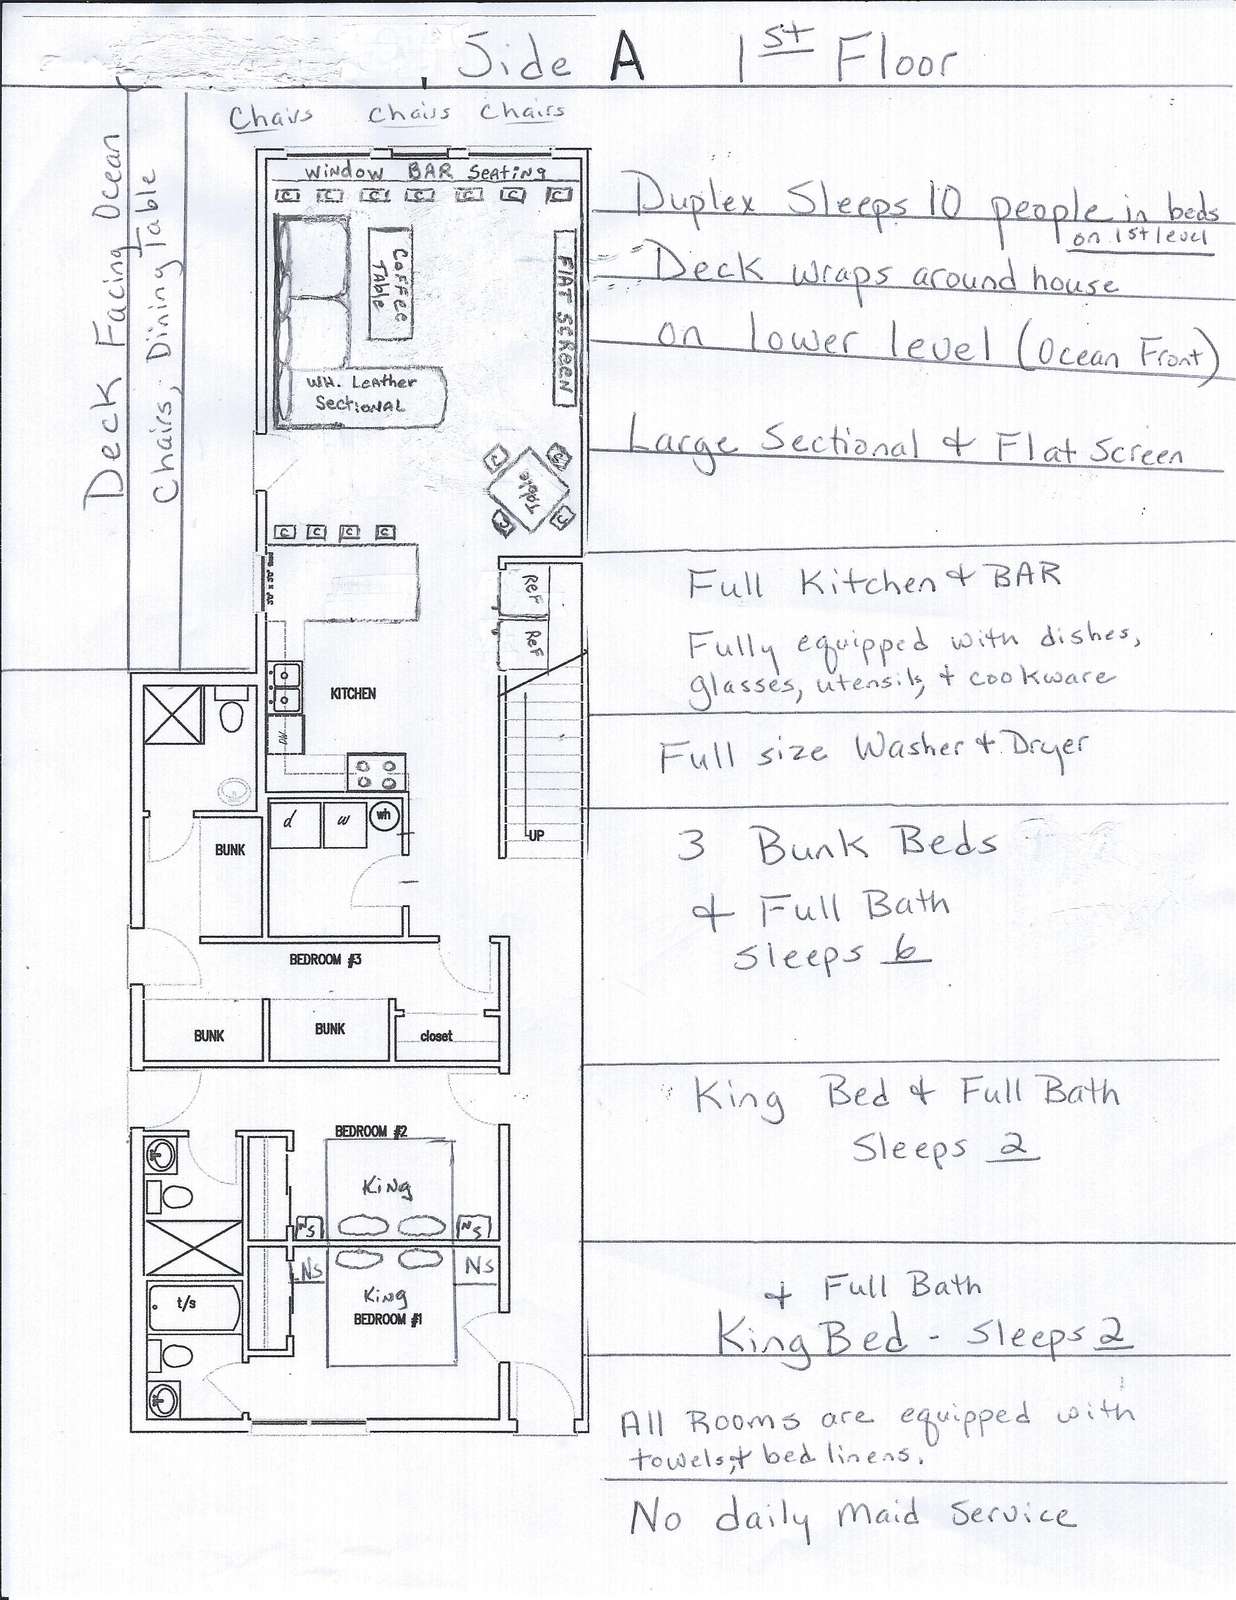 Side A 1st Floor
Chairs Chairs Chairs
Deck Facing Ocean
Chairs, Dining Table
Window BAR Seating
C C C C C C C
Coffee
Table
FlAT SCREEN
WH. Leather
Sectional
C C
Table
C C
C C C C
Ref
Ref
KITCHEN
DW
d w wh
UP
BUNK
BEDROOM #3
BUNK BUNK closet
BEDROOM #2
King
NS NS
NS NS
King
BEDROOM #1
t/s
Duplex Sleeps 10 people in beds
on 1st level
Deck wraps around house
on lower level (Ocean Front)
Large Sectional & Flat Screen
Full Kitchen & BAR
Fully equipped with dishes,
glasses, utensils, & cookware
Full size Washer & Dryer
3 Bunk Beds
& Full Bath
Sleeps 6
King Bed & Full Bath
Sleeps 2
& Full Bath
King Bed - Sleeps 2
All Rooms are equipped with
towels, & bed linens.
No daily Maid Service